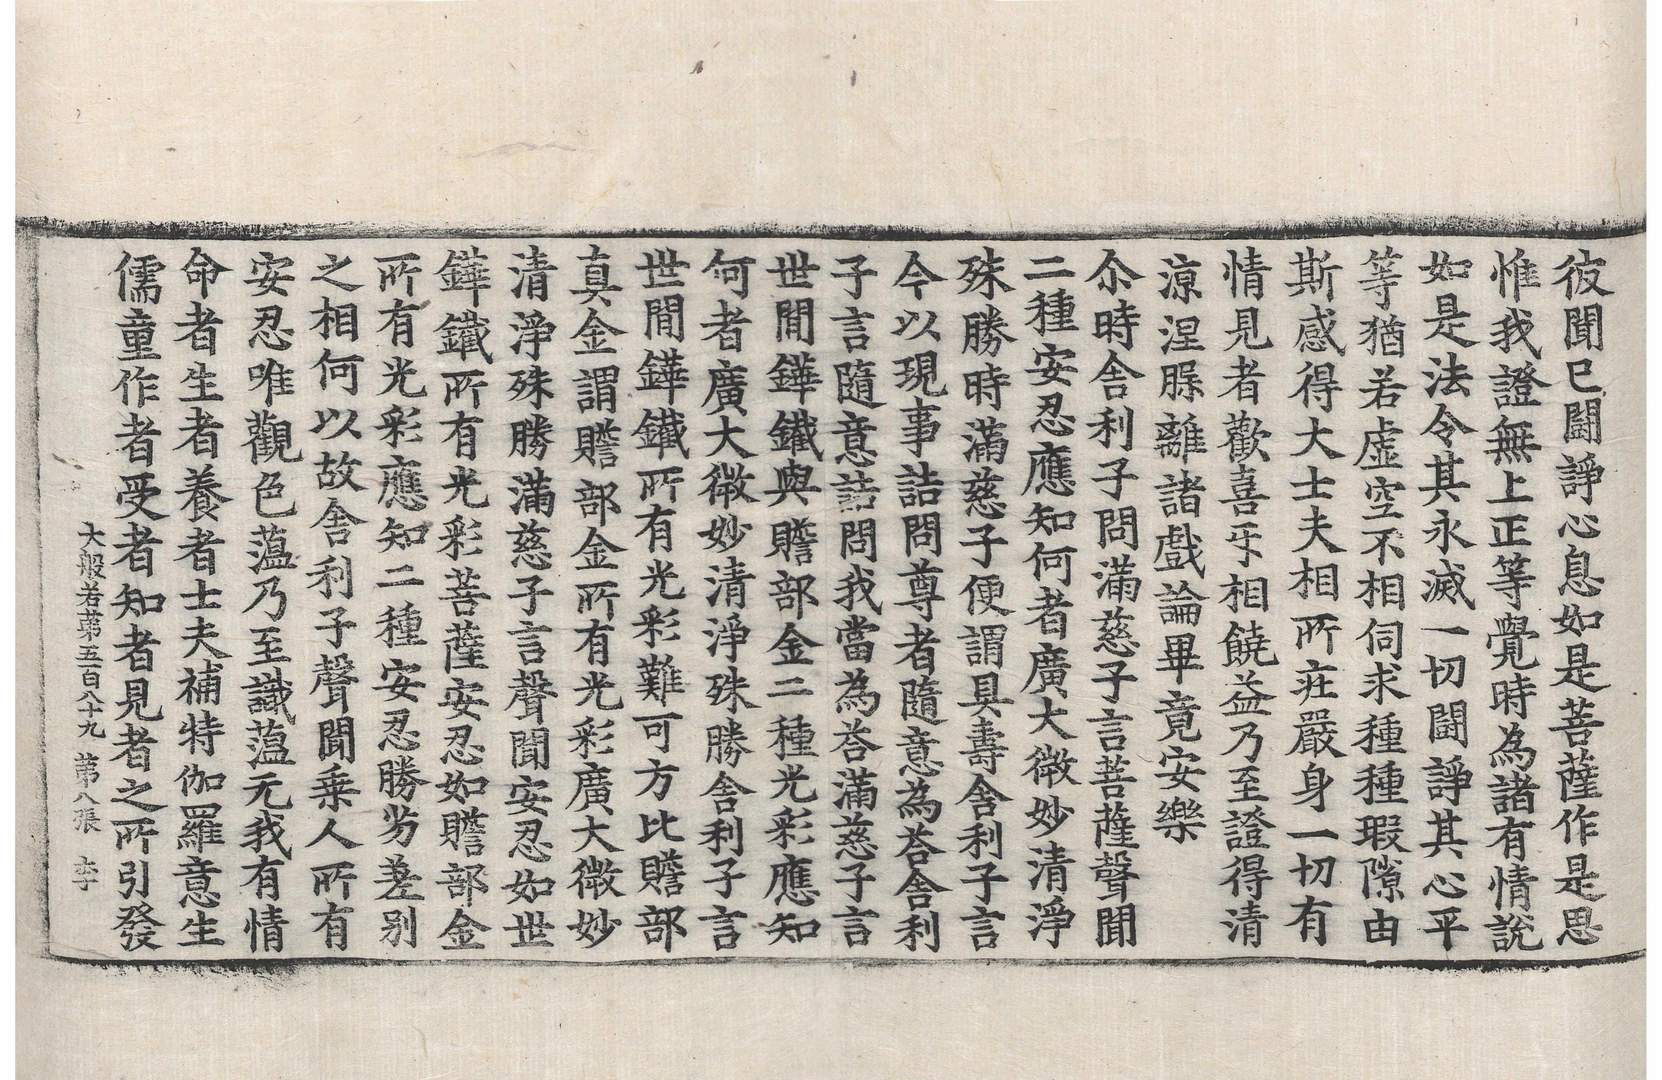 彼聞已鬪諍心息如是菩薩作是思
惟我證無上正等覺時為諸有情說
如是法令其永滅一切鬪諍其心平
等猶若虛空不相伺求種種瑕隙由
斯感得大士夫相所莊嚴身一切有
情見者歡喜㸦相饒益乃至證得清
涼涅槃離諸戲論畢竟安樂
尒時舍利子問滿慈子言菩薩聲聞
二種安忍應知何者廣大微妙清淨
殊勝時滿慈子便謂具壽舍利子言
今以現事詰問尊者隨意為荅舍利
子言隨意詰問我當為荅滿慈子言
世間鏵鐵與贍部金二種光彩應知
何者廣大微妙清淨殊勝舍利子言
世間鏵鐵所有光彩難可方比贍部
真金謂贍部金所有光彩廣大微妙
清淨殊勝滿慈子言聲聞安忍如世
鏵鐵所有光彩菩薩安忍如贍部金
所有光彩應知二種安忍勝劣差別
之相何以故舍利子聲聞乗人所有
安忍唯觀色蕰乃至識蕰无我有情
命者生者養者士夫補特伽羅意生
儒童作者受者知者見者之所引發
大般若第五百八十九 第八張 李